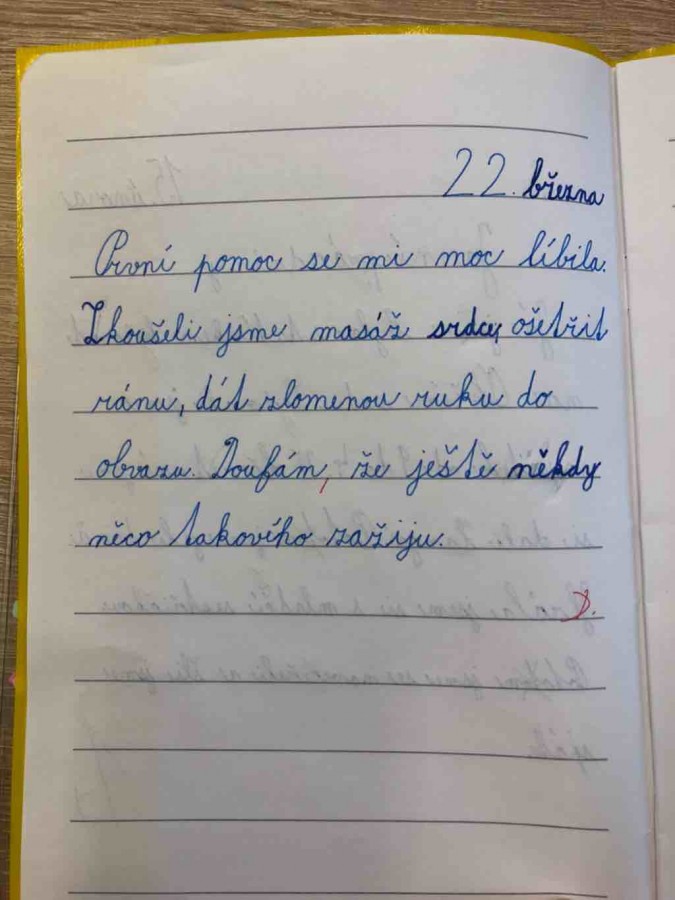 22. března
První pomoc se mi moc líbila.
Zkoušeli jsme masáž srdce, ošetřit
ránu, dát zlomenou ruku do
obvazu. Doufám, že ještě někdy
něco takového zažiju.